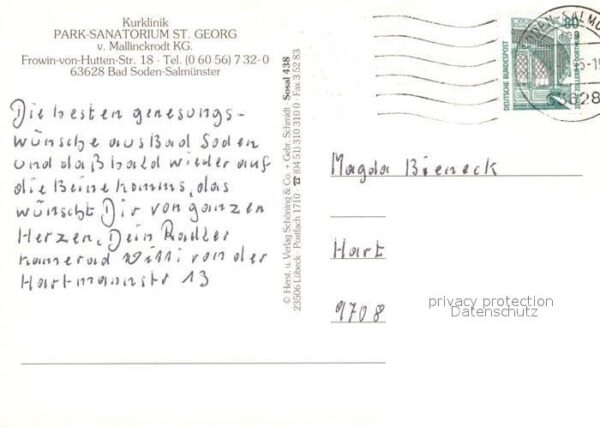 Kurklinik
PARK-SANATORIUM ST. GEORG
v. Mallinckrodt KG.
Frowin-von-Hutten-Str. 18 · Tel. (0 60 56) 7 32-0
63628 Bad Soden-Salmünster
Die besten genesungs-
wünsche aus Bad Soden
und daß bald wieder auf
die Beine komms, das
wünscht Dir von ganzen
Herzen, Dein Radler
kamerad Willi von der
Hartmannstr 13
© Herst. u. Verlag Schöning & Co. + Gebr. Schmidt Sosal 438
23506 Lübeck · Postfach 1710 · ☎ (04 51) 310 310 0 · Fax 3 52 83
DEUTSCHE BUNDESPOST
80
63628
Magda Bieneck
Hart
9708
privacy protection
Datenschutz